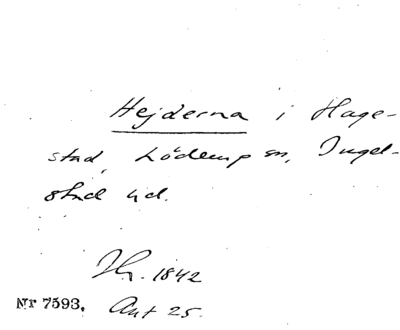 Hejderna i Hage-
stad, Löderup sn, Ingel-
stad hd.
Nr 7593.
1842
Ant 25.